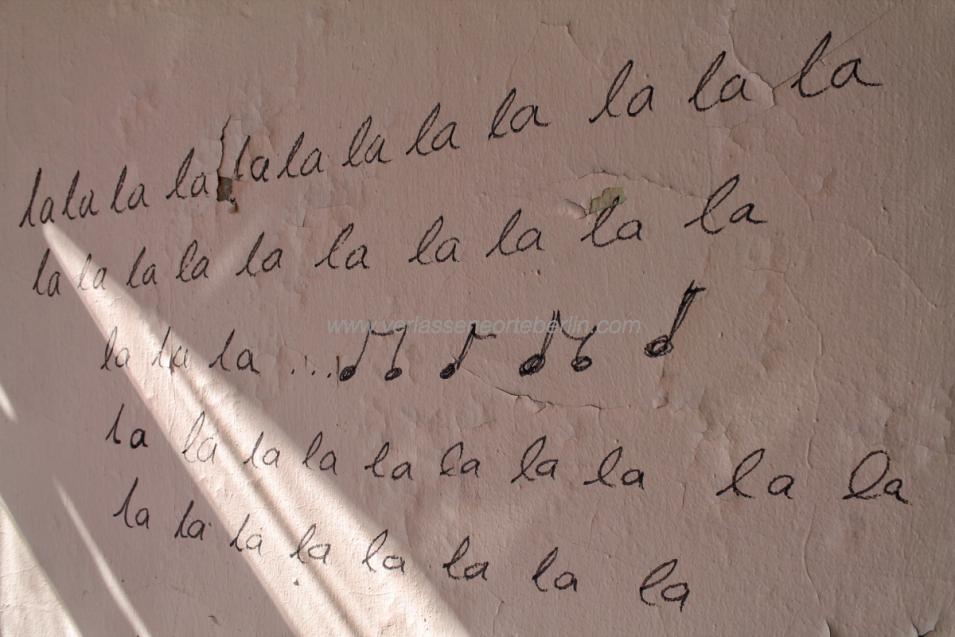 la la la la la la la la la la la la
la la la la la la la la la la
www.verlasseneorteberlin.com
la la la ...
la la la la la la la la la la
la la la la la la la la